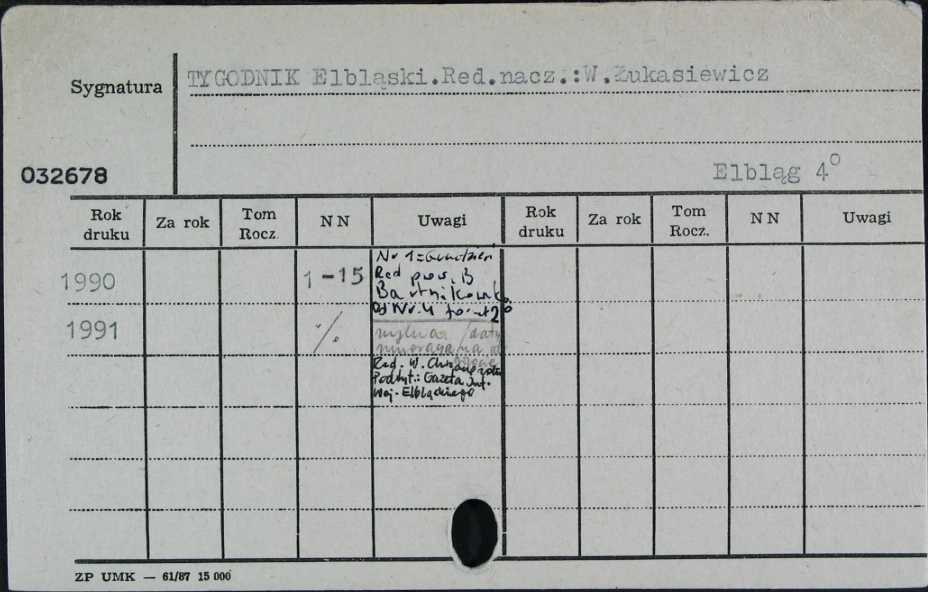 Sygnatura
TYGODNIK Elbląski.Red.nacz.:W.Łukasiewicz
032678
Elbląg 4⁰
Rok druku
Za rok
Tom Rocz.
NN
Uwagi
Rok druku
Za rok
Tom Rocz.
NN
Uwagi
1990
1-15
Nr 1=Grudzień
Red prow. B
Od Nr. 4
1991
./.
mylna
Red. W.
Podtyt.: Gazeta Int.
Woj. Elbląskiego
ZP UMK — 61/87 15 000